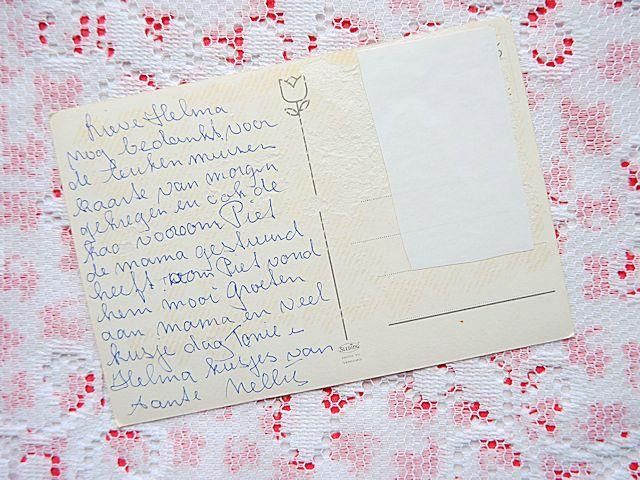 Lieve Helma
nog bedankt voor
de leuken muizen
kaarte van morgen
gekregen en ook de
voor oom Piet
de mama gestuurd
heeft oom Piet vond
hem mooi groeten
aan mama en veel
kusje dag Tonie
Helma kusjes van
tante Nellis